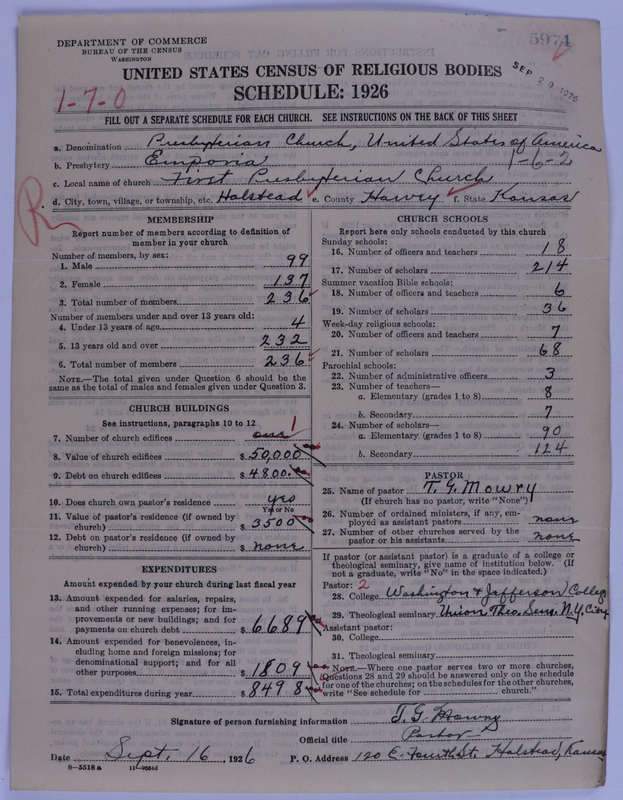 DEPARTMENT OF COMMERCE
BUREAU OF THE CENSUS
WASHINGTON
5974
SEP 20 1926
UNITED STATES CENSUS OF RELIGIOUS BODIES
SCHEDULE: 1926
1-7-0
FILL OUT A SEPARATE SCHEDULE FOR EACH CHURCH. SEE INSTRUCTIONS ON THE BACK OF THIS SHEET
a. Denomination Presbyterian Church, United States of America
b. Presbytery Emporia 1-6-2
c. Local name of church First Presbyterian Church
d. City, town, village, or township, etc. Halstead e. County Harvey f. State Kansas
R
MEMBERSHIP
Report number of members according to definition of
member in your church
Number of members, by sex:
1. Male 99
2. Female 137
3. Total number of members 236
Number of members under and over 13 years old:
4. Under 13 years of age 4
5. 13 years old and over 232
6. Total number of members 236
NOTE.—The total given under Question 6 should be the
same as the total of males and females given under Question 3.
CHURCH BUILDINGS
See instructions, paragraphs 10 to 12
7. Number of church edifices one 1
8. Value of church edifices $ 50,000.00
9. Debt on church edifices $ 4800.00
10. Does church own pastor's residence yes
Yes or No
11. Value of pastor's residence (if owned by
church) $ 3500
12. Debt on pastor's residence (if owned by
church) $ none
EXPENDITURES
Amount expended by your church during last fiscal year
13. Amount expended for salaries, repairs,
and other running expenses; for im-
provements or new buildings; and for
payments on church debt $ 6689
14. Amount expended for benevolences, in-
cluding home and foreign missions; for
denominational support; and for all
other purposes $ 1809
15. Total expenditures during year $ 8498
CHURCH SCHOOLS
Report here only schools conducted by this church
Sunday schools:
16. Number of officers and teachers 18
17. Number of scholars 214
Summer vacation Bible schools:
18. Number of officers and teachers 6
19. Number of scholars 36
Week-day religious schools:
20. Number of officers and teachers 7
21. Number of scholars 68
Parochial schools:
22. Number of administrative officers 3
23. Number of teachers—
a. Elementary (grades 1 to 8) 8
b. Secondary 7
24. Number of scholars—
a. Elementary (grades 1 to 8) 90
b. Secondary 124
PASTOR
25. Name of pastor T. G. Mowry
(If church has no pastor, write "None")
26. Number of ordained ministers, if any, em-
ployed as assistant pastors none
27. Number of other churches served by the
pastor or his assistants none
If pastor (or assistant pastor) is a graduate of a college or
theological seminary, give name of institution below. (If
not a graduate, write "No" in the space indicated.)
Pastor: 2
28. College Washington & Jefferson College
29. Theological seminary Union Theo. Sem. N.Y. City
Assistant pastor:
30. College
31. Theological seminary
NOTE.—Where one pastor serves two or more churches,
Questions 28 and 29 should be answered only on the schedule
for one of the churches; on the schedules for the other churches,
write "See schedule for church."
Signature of person furnishing information T. G. Mowry
Official title Pastor
Date Sept. 16, 1926 P. O. Address 120 E. Fourth St. Halstead, Kansas
8—5518 a